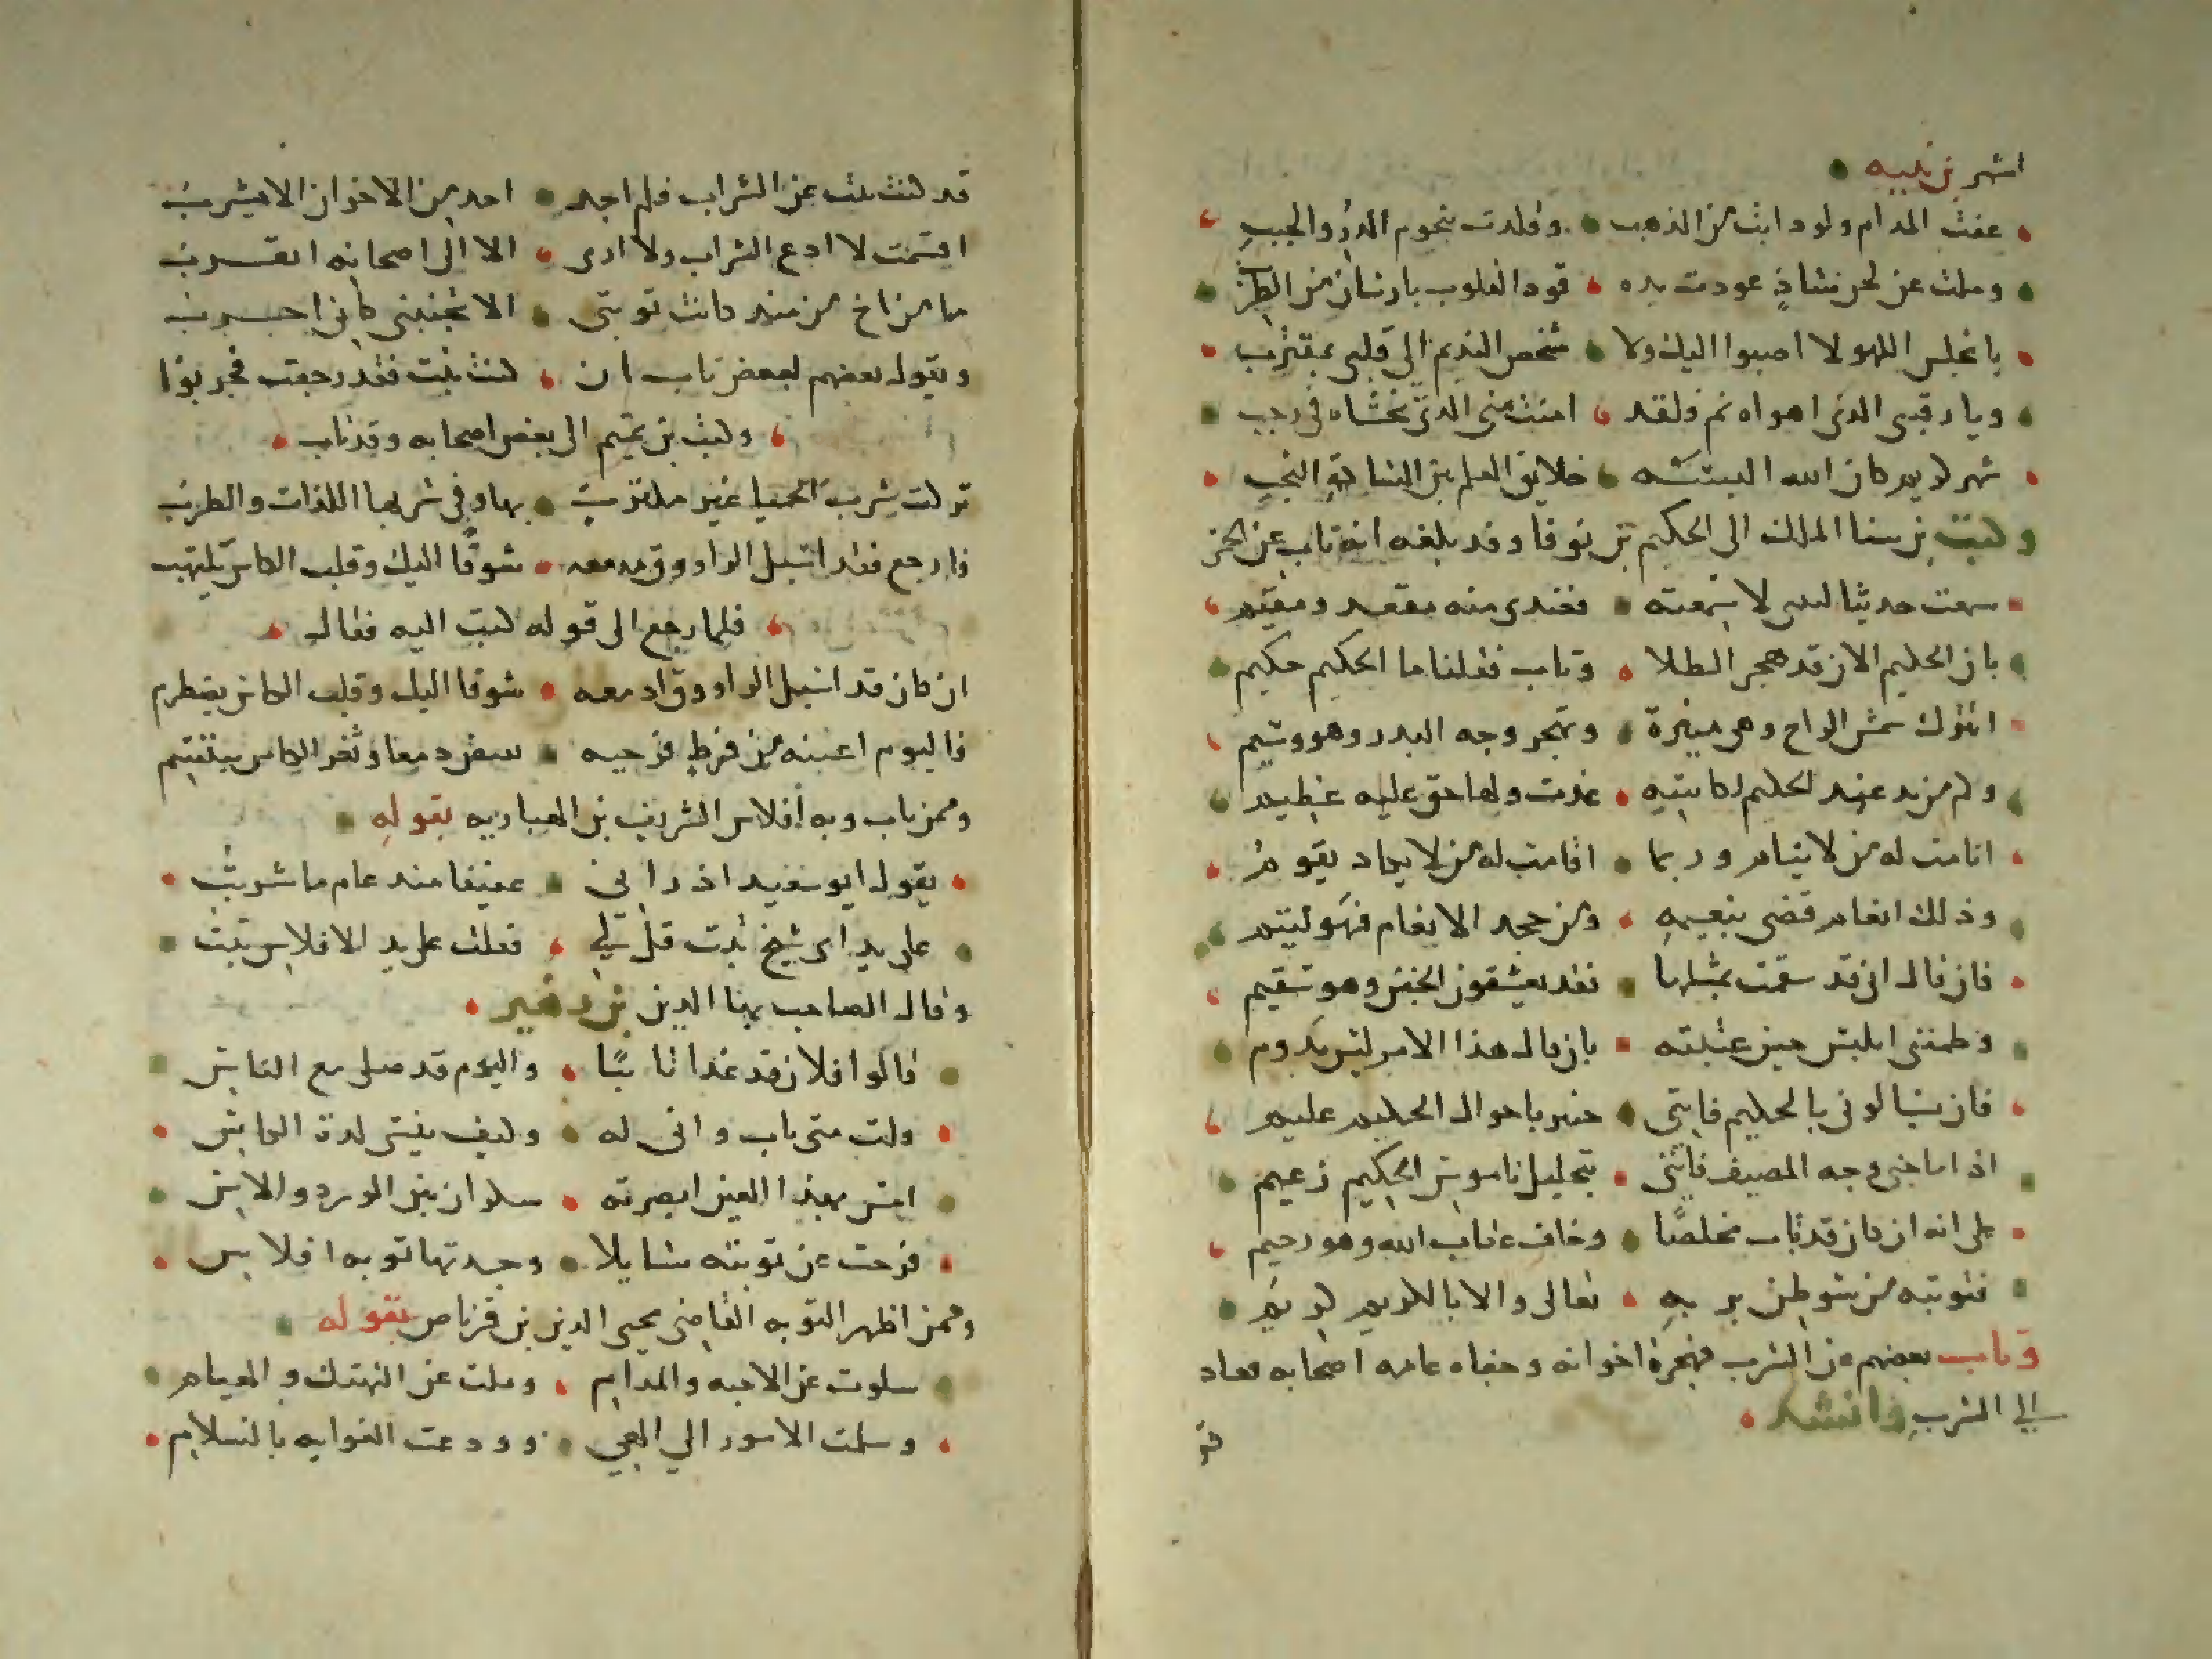 اشهر بن نبيه
عفت المدام ولو دابت من الذهب وقلدت بنجوم الدر والحبب
وملت عن لحن شاذ عودت يده قود القلوب بارسان من الطرب
يا مجلس اللهو لا اصبوا اليك ولا شخص النديم الى قلبي بمقترب
ويا رقيبي الذى اهواه نم فلقد امنت مني الذى تخشاه في رجب
شهر كريم كان الله البسه خلايق العلم بن السادة النجب
وكتب بن سنا الملك الى الحكيم بن نوفا وقد بلغه انه تاب عن الخمر
سمعت حديثا ليس لا سمعته فعندى منه مقعد ومقيم
بان الحكيم الان قد هجر الطلا وتاب فقلنا ما الحكيم حكيم
اتترك شمس الراح وهى منيرة وتهجر وجه البدر وهو وسيم
وكم من يد عند الحكيم لكاسه غدت ولها حق عليه عظيم
انامت له من لا ينام وربما اقامت له من لا يكاد يقوم
وذلك انعام قضى بنعيمه ومن جحد الانعام فهو لئيم
فان قال انى قد سقمت بشربها فقد يعشقون الجفن وهو سقيم
وطمننى ابليس حين عتبته بان قال هذا الامر ليس يدوم
فان تسالونى بالحكيم فانني خبير باحوال الحكيم عليم
اذا ما جنى وجه المصيف فانني بتحليل ناموس الحكيم زعيم
على انه ان كان قد تاب مخلصا وخاف عقاب الله وهو رحيم
فتوبته من شوطن بر به تعالى والا باللايم لويم
وتاب بعضهم عن الشرب فهجره اخوانه وجفاه عامه اصحابه فعاد
الى الشرب وانشد
قد
قد كنت تبت عن الشراب فلم اجد احد من الاخوان الا يشرب
اقسمت لا ادع الشراب ولا ارى الا الى اصحابه اتقرب
ما من اخ من منذ كانت توبتي الا تجنبني كاني اجرب
ويقول بعضهم لبعض تاب ان كنت تبت فقد رجعت فجربوا
وكتب بن تميم الى بعض اصحابه وقد تاب
تركت شرب الحميا غير مكترث بها وفي شربها اللذات والطرب
فارجع فقد اسبل الراووق مدمعه شوقا اليك وقلب الكاس يلتهب
فلما رجع الى قوله كتب اليه فقال
ان كان قد اسبل الراووق ادمعه شوقا اليك وقلب الكاس يضطرم
فاليوم اعينه من فرط فرحيه سفرد معا وثغر الكاس يبتسم
وممن تاب وبه افلاس الشريف بن الهباريه بقوله
يقول ابو سعيد اذ رانى عفيفا منذ عام ما شربت
على يد اى شيخ تبت قل لي فقلت على يد الافلاس تبت
وقال الصاحب بها الدين بن زهير
قالوا فلان قد غدا تائبا واليوم قد صلى مع الناس
قلت متى تاب وانى له وكيف ينسى لذة الكاس
امس بهذا العين ابصرته سكران بين الورد والاس
فرحت عن توبته سايلا وجدتها توبه افلاس
وممن اظهر التوبه القاضى محيى الدين بن قرناص بقوله
سلوت عن الاحبه والمدام وملت عن التهتك والهيام
وسلمت الامور الي الهي وودعت الغوايه بالسلام